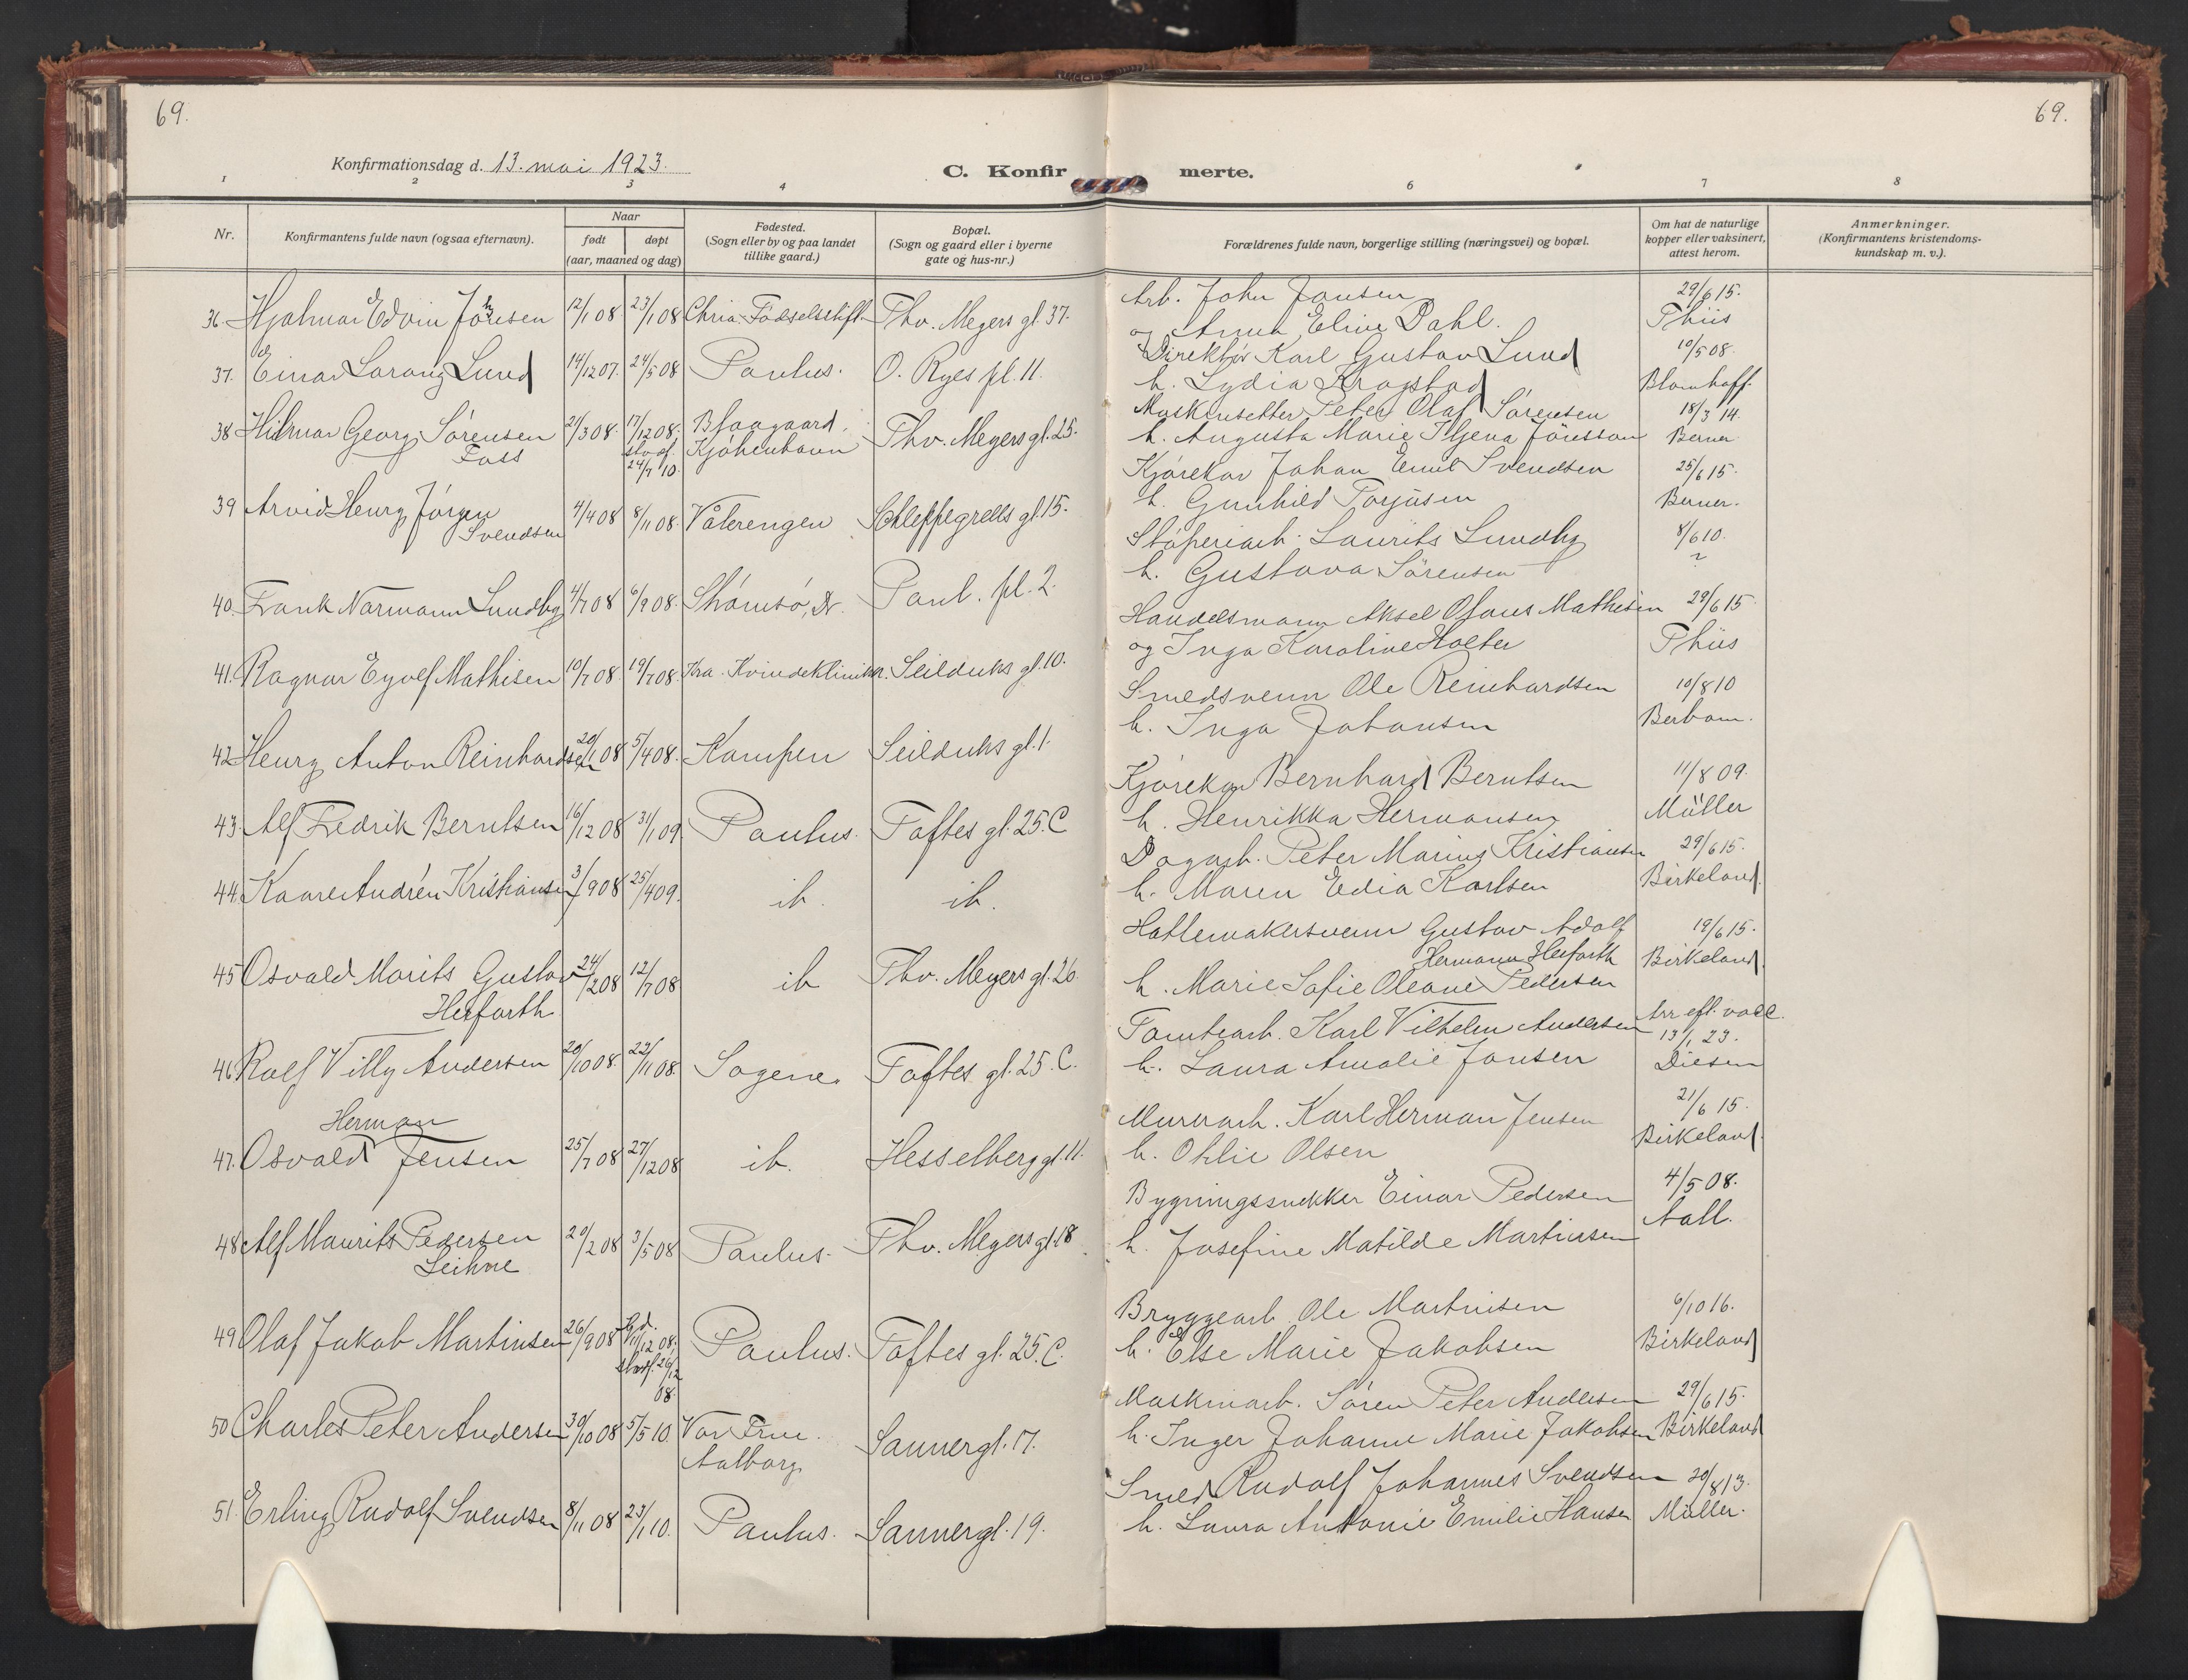 69.
69.
Konfirmationsdag d. 13. mai 1923.
C. Konfir merte.
1 2 3 4 6 7 8
Nr.
Konfirmantens fulde navn (ogsaa efternavn).
Naar
født døpt
(aar, maaned og dag)
Fødested.
(Sogn eller by og paa landet
tillike gaard.)
Bopæl.
(Sogn og gaard eller i byerne
gate og hus-nr.)
Forældrenes fulde navn, borgerlige stilling (næringsvei) og bopæl.
Om hat de naturlige
kopper eller vaksinert,
attest herom.
Anmerkninger.
(Konfirmantens kristendoms-
kundskap m. v.).
36. Hjalmar Edvin 12/1 08 23/1 08 Chria Fødselsstift. Thv. Meyers gt. 37.
Arb. John Jansen 29/6 15.
og Anna Eline Dahl. Thiis
37. Einar Lorang Lund 14/12 07. 24/5 08 Paulus. O. Ryes pl. 11.
Direktør Karl Gustav Lund 10/5 08.
h. Lydia Krogstad Blomhoff.
38 Hilmar Georg Sörensen 21/3 08. 17/12 08. Blaagaard, Thv. Meyers gt. 25.
Foss stadf. Kjøbenhavn
24/7 10.
Maskinsetter Peter Olaf Sörensen 18/3 14.
h. Augusta Marie Jönsson Berner
39 Arvid Henry Jörgen 4/4 08 8/11 08. Vålerengen Schleppegrells gt. 15.
Svendsen
Kjørekar Johan Emil Svendsen 25/6 15.
h. Gunhild Torjusen Berner.
40. Frank Normann Lundby 4/7 08 6/9 08. Strömsö, Dr. Paul. pl. 2.
Stöperiarb. Laurits Lundby 8/6 10.
h. Gustava Sörensen
41. Ragnar Eyolf Mathisen 10/7 08. 19/7 08. Kra. Kvindeklinikk. Seilduks gt. 10.
Handelsmann Aksel Olaus Mathisen 29/6 15.
og Inga Karoline Holter Thiis
42 Henry Anton Reinhardsen 20/1 08 5/4 08. Kampen Seilduks gt. 1.
Smedsvenn Ole Reinhardsen 10/8 10
h. Inga Johansen
43. Alf Fredrik Berntsen 16/12 08 31/1 09. Paulus. Toftes gt. 25. C
Kjørekar Bernhard Berntsen 11/8 09.
h. Henrikka Hermansen Müller
44. Kaare Andrén Kristiansen 3/9 08 25/4 09. ib. ib.
Dagarb. Peter Marius Kristiansen 29/6 15.
h. Maren Edia Karlsen Birkeland.
45 Osvald Morits Gustav 24/2 08 12/7 08 ib Thv. Meyers gt. 26.
Herfarth
Hattemakersvenn Gustav Adolf 19/6 15.
Hermann Herfarth Birkeland.
h. Marie Sofie Oleane Pedersen
46 Rolf Villy Andersen 20/10 08. 22/11 08. Sagene. Toftes gt. 25. C.
Tomtearb. Karl Vilhelm Andersen Arr eft. vacc.
13/1 23.
h. Laura Amalie Jansen Diesen
Herman
47. Osvald Jensen 25/7 08 27/12 08 ib. Hesselberg gt. 11.
Murerarb. Karl Herman Jensen 21/6 15.
h. Othlie Olsen Birkeland.
48 Alf Maurits Pedersen 29/2 08 3/5 08 Paulus. Thv. Meyers gt. 18
Leikne
Bygningssnekker Einar Pedersen 4/5 08.
h. Josefine Matilde Martinsen Aall.
49 Olaf Jakob Martinsen 26/9 08 11/12 08. Paulus. Toftes gt. 25. C.
stadf. 26/12
08.
Bryggearb. Ole Martinsen 6/10 16.
h. Else Marie Jakobsen Birkeland
50 Charles Peter Andersen 30/10 08 5/5 10. Vor Frue. Sannergt. 17.
Aalborg
Maskinarb. Sören Peter Andersen 29/6 15.
h. Inger Johanne Marie Jakobsen Birkeland
51. Erling Rudolf Svendsen 8/11 08 23/1 10. Paulus. Sannergt. 19.
Smed Rudolf Johannes Svendsen 20/8 13.
h. Laura Antonie Emilie Hansen Müller.